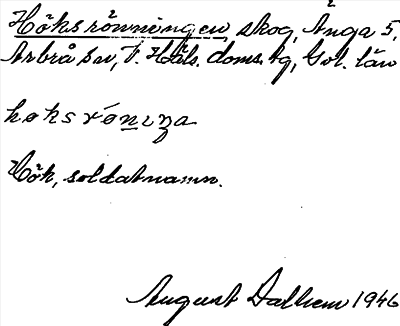 Höksrönningen skog, Änga 5,
Arbrå sn, V. Häls. doms. bg, Gvl. län
høksrǿniŋa
Hök, soldatnamn.
August Dalhem 1946